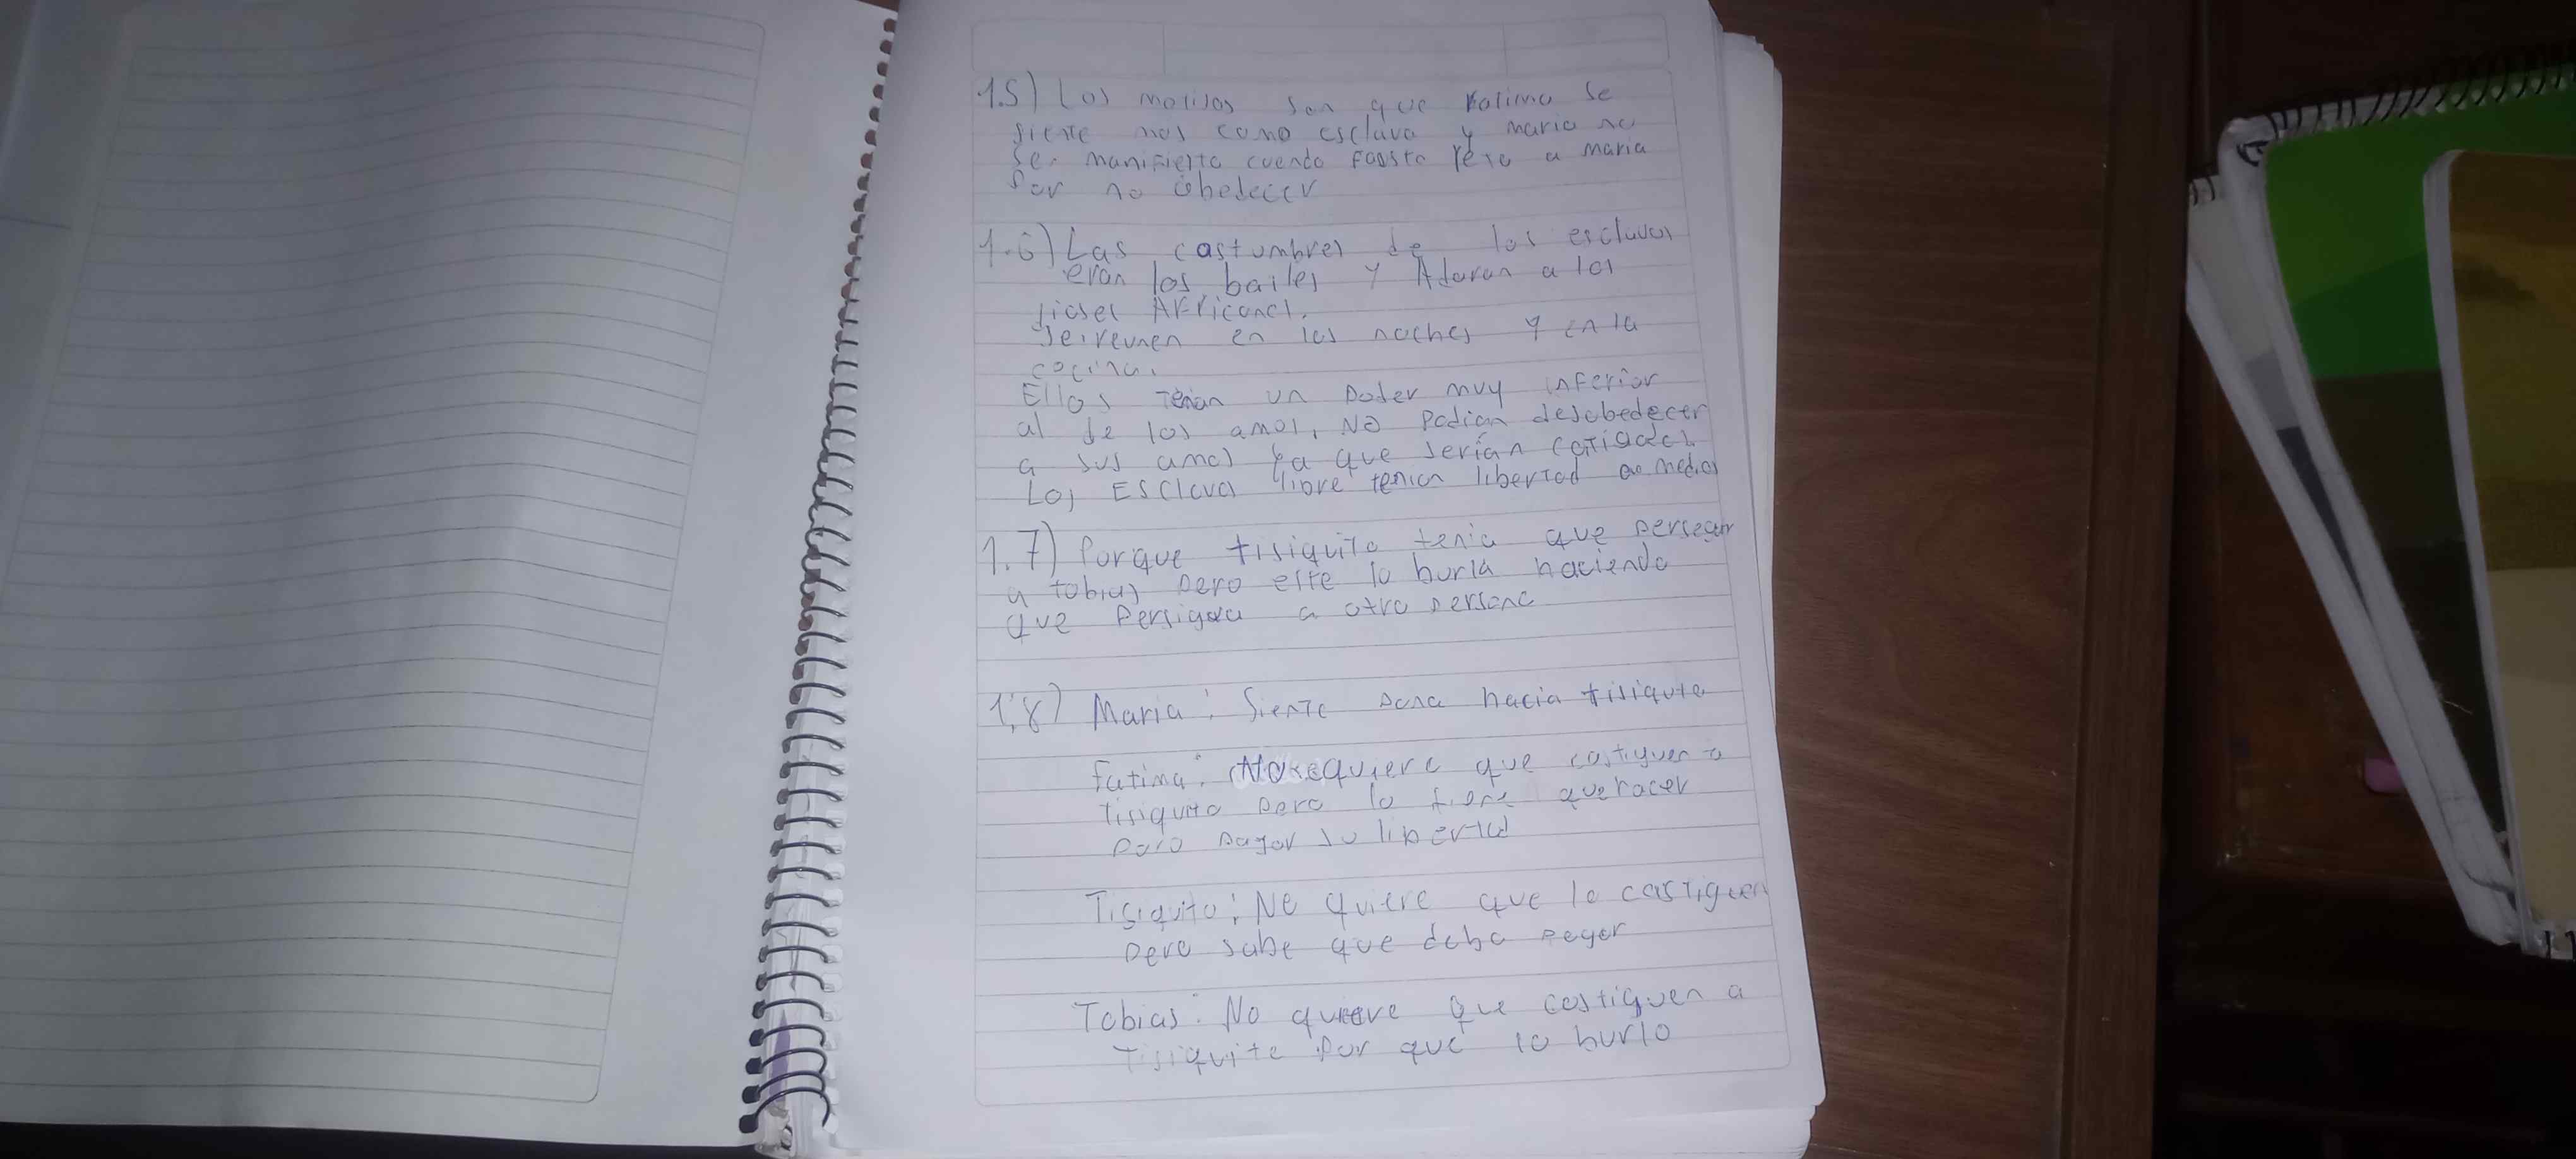 1.5) Los motivos son que Fatima se
siente mas como esclava y maria no
se manifiesta cuando Fausto reta a maria
Por no obedecer
1.6) Las costumbres de los esclavos
eran los bailes y Adoran a los
dioses Africanos.
Se reunen en las noches y en la
cocina.
Ellos tenian un Poder muy inferior
al de los amos, No Podian desobedecer
a sus amos ya que serían castigados.
Los Esclavos libre tenian libertad a medias
1.7) Porque tisiquito tenia que perseguir
a tobias pero este lo burla haciendo
que Persiguera a otra persona
1.8) Maria: Siente pena hacia tisiquito
fatima: No quiere que castiguen a
tisiquito pero lo tiene que hacer
para pagar su libertad
Tisiquito: No quiere que lo castiguen
pero sabe que debe pagar
Tobias: No quiere que castiguen a
Tisiquito Por que lo burlo